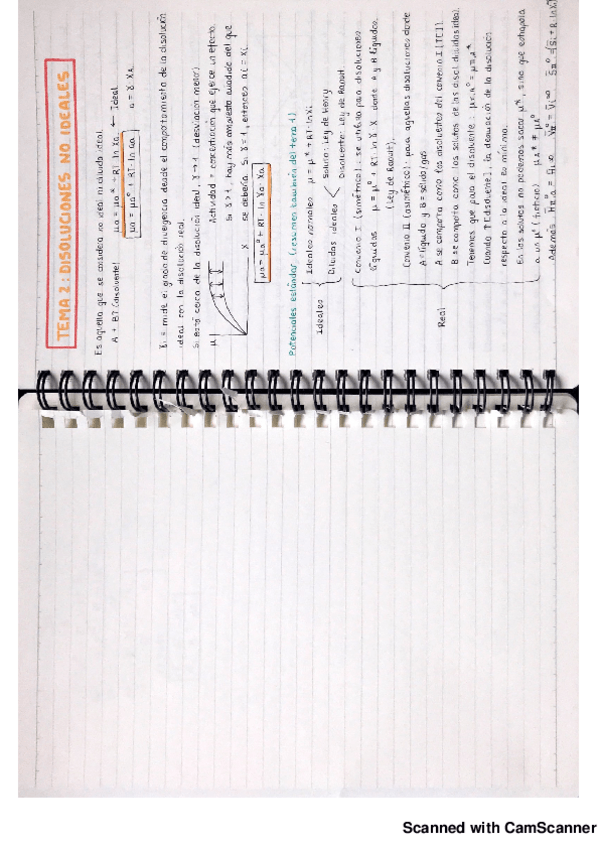 TEMA 2: DISOLUCIONES NO IDEALES
Es aquella que se considera no ideal ni diluida ideal.
A + BT (disolvente) μa = μa* + RT·ln Xa ← ideal
μa = μa° + RT·ln aa a = γ·Xa
γi = mide el grado de divergencia desde el comportamiento de la disolución
ideal con la disolución real.
Si está cerca de la disolución ideal, γ→1. (desviación menor)
μ Actividad = concentración que ejerce un efecto.
Si γ>1, hay más ampuesto añadido del que
X se debería. Si γ=1, entonces ai = Xi.
μa = μa° + RT·ln γa·Xa
Potenciales estándar (resumen también del tema 1)
Ideales Ideales normales μ = μ* + RT·lnXi
Diluidas ideales Soluto: Ley de Henry
Disolvente: Ley de Raoult
Real Convenio I (simétrico): se utiliza para disoluciones
líquidas μ = μ° + RT ln γ X siendo A y B líquidos.
(Ley de Raoult).
Convenio II (asimétrico): para aquellas disoluciones donde
A = líquido y B = sólido/gas
A se comporta como los disolventes del convenio I [TCI].
B se comporta como los solutos de las disol. diluidas ideal.
Tenemos que para el disolvente: μA° = μA*
Cuando ↑[disolvente], la desviación de la disolución
respecto a la ideal es mínima.
En los solutos no podemos sacar μ*, sino que extrapola
a un μ° (ficticio) μA* ≠ μA°
Además